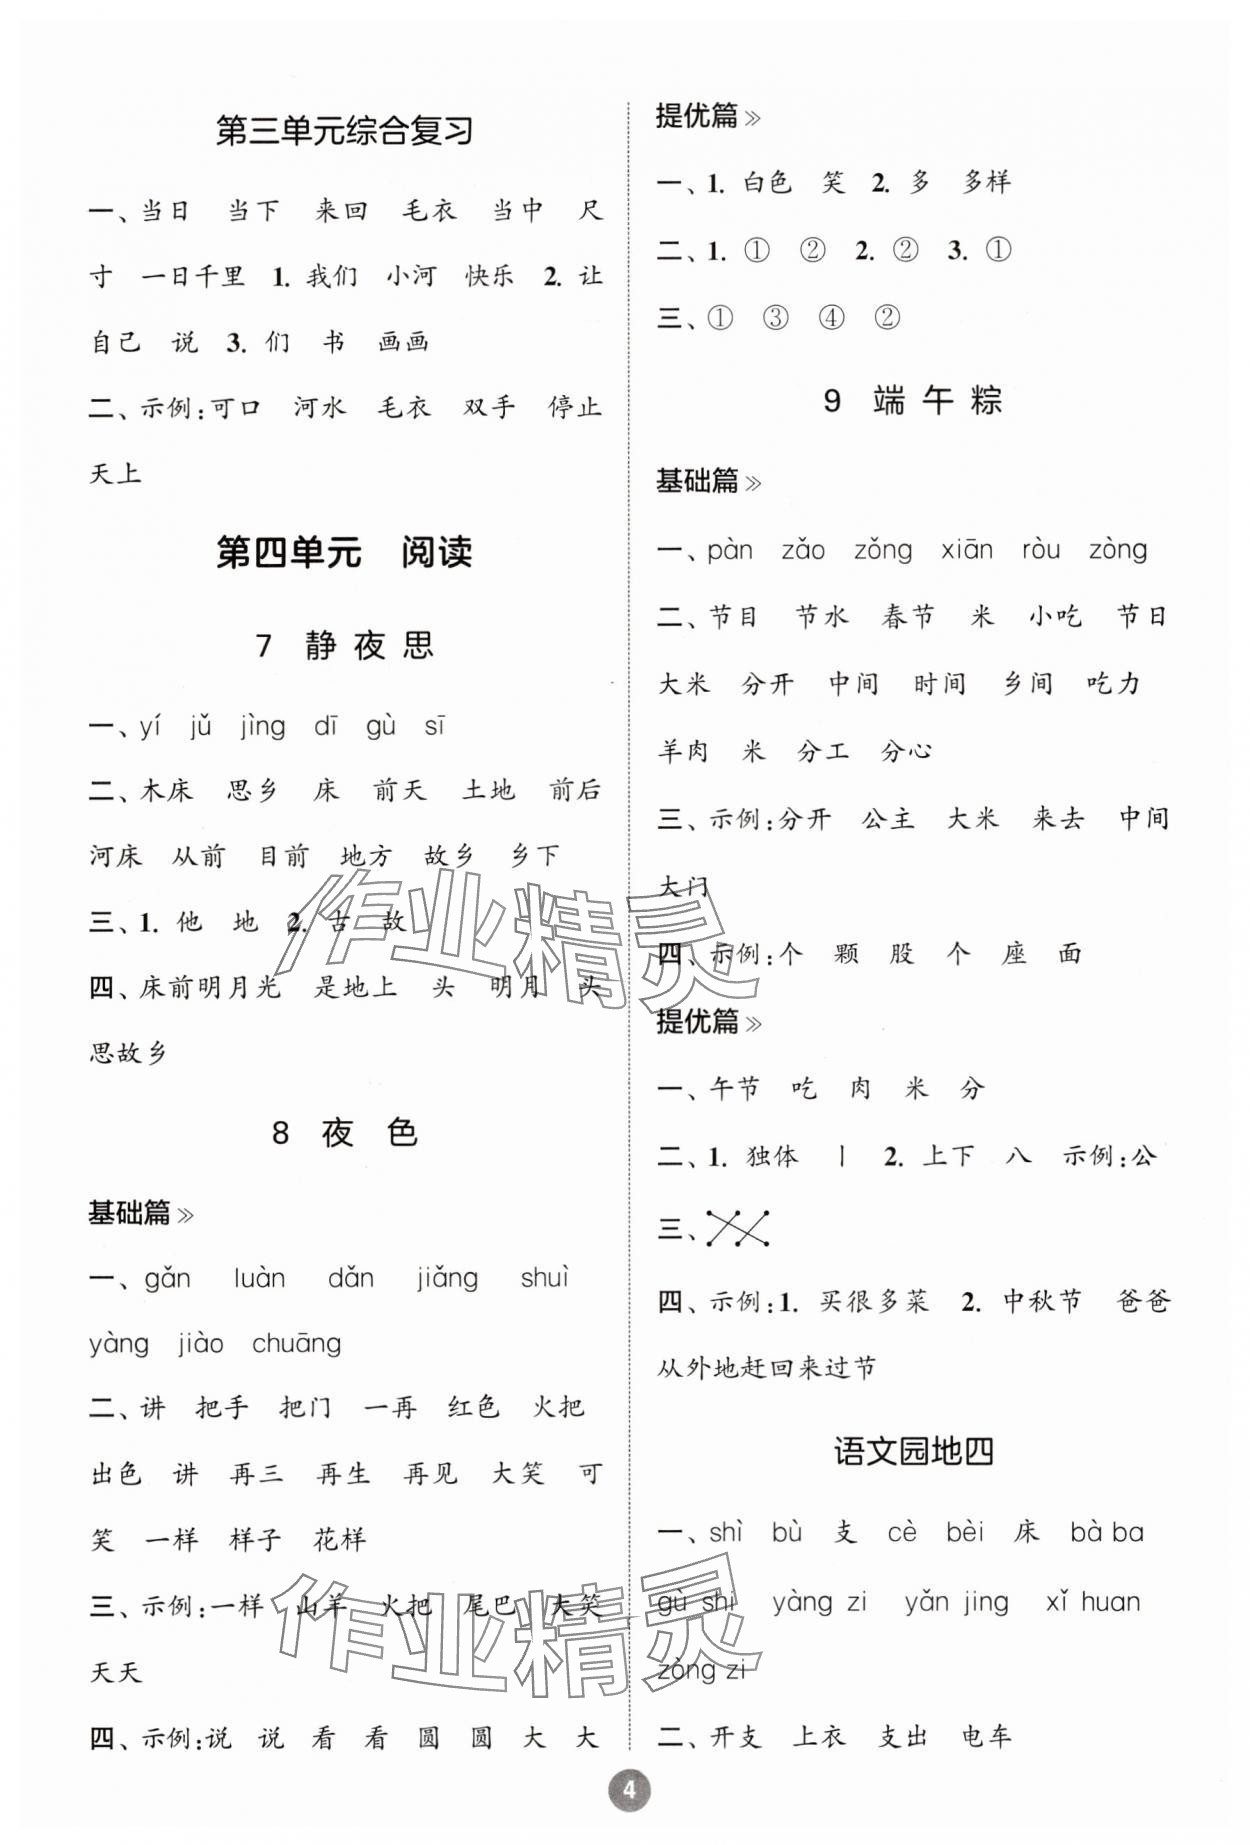 第三单元综合复习
一、当日 当下 来回 毛衣 当中 尺
寸 一日千里 1. 我们 小河 快乐 2. 让
自己 说 3. 们 书 画画
二、示例:可口 河水 毛衣 双手 停止
天上
第四单元 阅读
7 静夜思
一、yí jǔ jìng dī gù sī
二、木床 思乡 床 前天 土地 前后
河床 从前 目前 地方 故乡 乡下
三、1. 他 地 2. 古 故
四、床前明月光 是地上 头 明月 头
思故乡
8 夜色
基础篇»
一、gǎn luàn dǎn jiǎng shuì
yàng jiào chuāng
二、讲 把手 把门 一再 红色 火把
出色 讲 再三 再生 再见 大笑 可
笑 一样 样子 花样
三、示例:一样 山羊 火把 尾巴 大笑
天天
四、示例:说 说 看 看 圆 圆 大 大
提优篇»
一、1. 白色 笑 2. 多 多样
二、1. ① ② 2. ② 3. ①
三、① ③ ④ ②
9 端午粽
基础篇»
一、pàn zǎo zǒng xiān ròu zòng
二、节目 节水 春节 米 小吃 节日
大米 分开 中间 时间 乡间 吃力
羊肉 米 分工 分心
三、示例:分开 公主 大米 来去 中间
大门
四、示例:个 颗 股 个 座 面
提优篇»
一、午节 吃 肉 米 分
二、1. 独体 丨 2. 上下 八 示例:公
三、
四、示例:1. 买很多菜 2. 中秋节 爸爸
从外地赶回来过节
语文园地四
一、shì bù 支 cè bèi 床 bà ba
gù shi yàng zi yǎn jing xǐ huan
zòng zi
二、开支 上衣 支出 电车
4
作业精灵
作业精灵